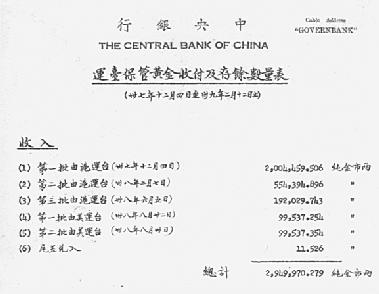 中央銀行
Cable Address
"GOVERNBANK"
THE CENTRAL BANK OF CHINA
運臺保管黃金收付及存餘數量表
(卅七年十二月四日至卅九年二月十二日止)
收入
(1) 第一批由滬運台 (卅七年十二月四日) 2,004,459.506 純金市兩
(2) 第二批由滬運台 (卅八年二月七日) 554,394.896 〃
(3) 第三批由滬運台 (卅八年六月五日) 192,029.743 〃
(4) 第一批由美運台 (卅八年八月廿二日) 99,537.254 〃
(5) 第二批由美運台 (卅八年八月卅日) 99,537.354 〃
(6) 尾差 11.526 〃
總計 2,949,970.279 純金市兩